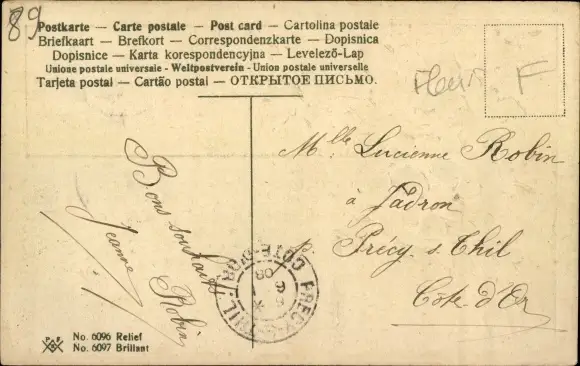 89
Postkarte — Carte postale — Post card — Cartolina postale
Briefkaart — Brefkort — Correspondenzkarte — Dopisnica
Dopisnice — Karta korespondencyjna — Levelező-Lap
Unione postale universale - Weltpostverein - Union postale universelle
Tarjeta postal — Cartão postal — ОТКРЫТОЕ ПИСЬМО.
Fleurs F
Mlle Lucienne Robin
à Jadron
p. Précy s. Thil
Côte d'Or
Bons souhaits
Jeanne Robin
PRECY-S-THIL
COTE-D'OR
08
No. 6096 Relief
No. 6097 Brillant